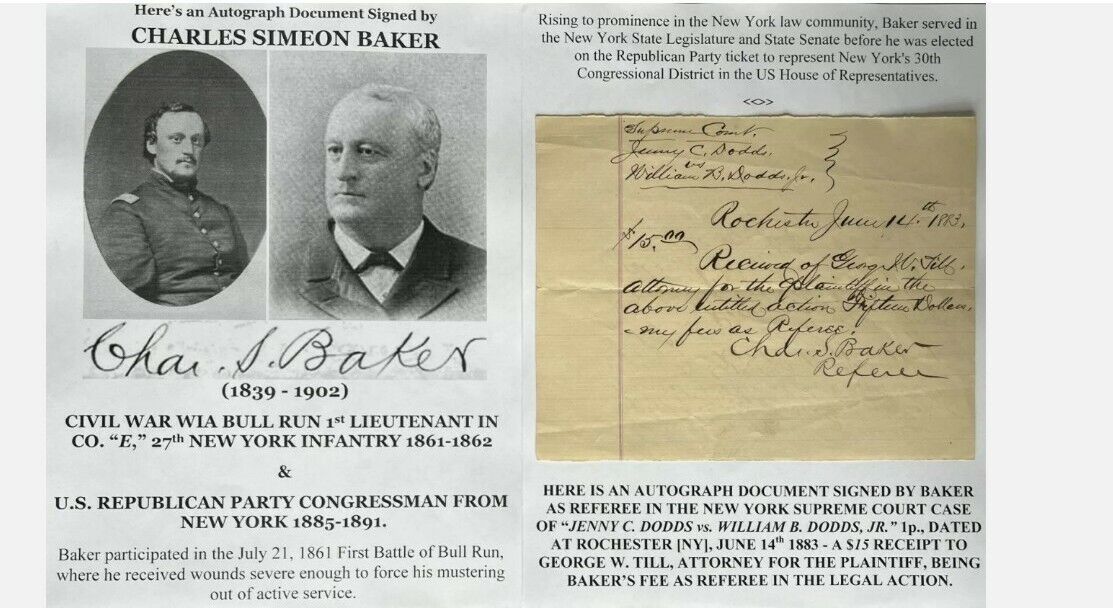 Here's an Autograph Document Signed by
CHARLES SIMEON BAKER
Chas. S. Baker
(1839 - 1902)
CIVIL WAR WIA BULL RUN 1st LIEUTENANT IN
CO. “E,” 27th NEW YORK INFANTRY 1861-1862
&
U.S. REPUBLICAN PARTY CONGRESSMAN FROM
NEW YORK 1885-1891.
Baker participated in the July 21, 1861 First Battle of Bull Run,
where he received wounds severe enough to force his mustering
out of active service.
Rising to prominence in the New York law community, Baker served in
the New York State Legislature and State Senate before he was elected
on the Republican Party ticket to represent New York's 30th
Congressional District in the US House of Representatives.
<<>>
Supreme Court.
Jenny C. Dodds.
vs
William B. Dodds, Jr.
Rochester June 14th 1883.
$15.00
Received of George W. Till.
attorney for the plaintiff in the
above entitled action Fifteen Dollars,
my fees as Referee.
Chas. S. Baker
Referee
HERE IS AN AUTOGRAPH DOCUMENT SIGNED BY BAKER
AS REFEREE IN THE NEW YORK SUPREME COURT CASE
OF “JENNY C. DODDS vs. WILLIAM B. DODDS, JR.” 1p., DATED
AT ROCHESTER [NY], JUNE 14th 1883 - A $15 RECEIPT TO
GEORGE W. TILL, ATTORNEY FOR THE PLAINTIFF, BEING
BAKER'S FEE AS REFEREE IN THE LEGAL ACTION.